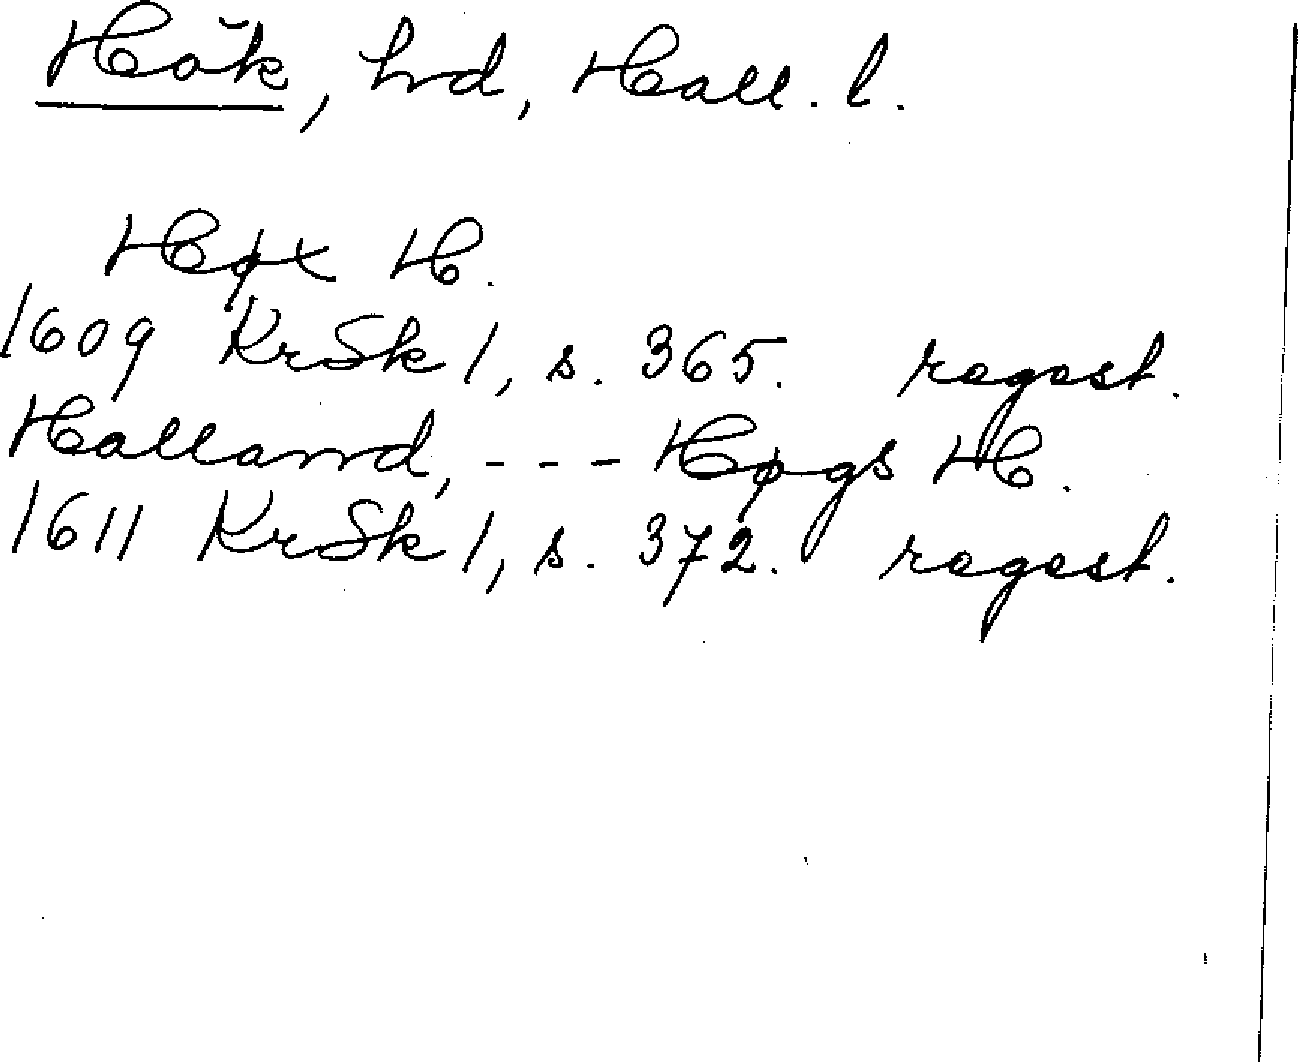 Hök, hd, Hall. l.
Høx H.
1609 KrSk 1, s. 365. regest.
Halland, --- Høgs H.
1611 KrSk 1, s. 372. regest.